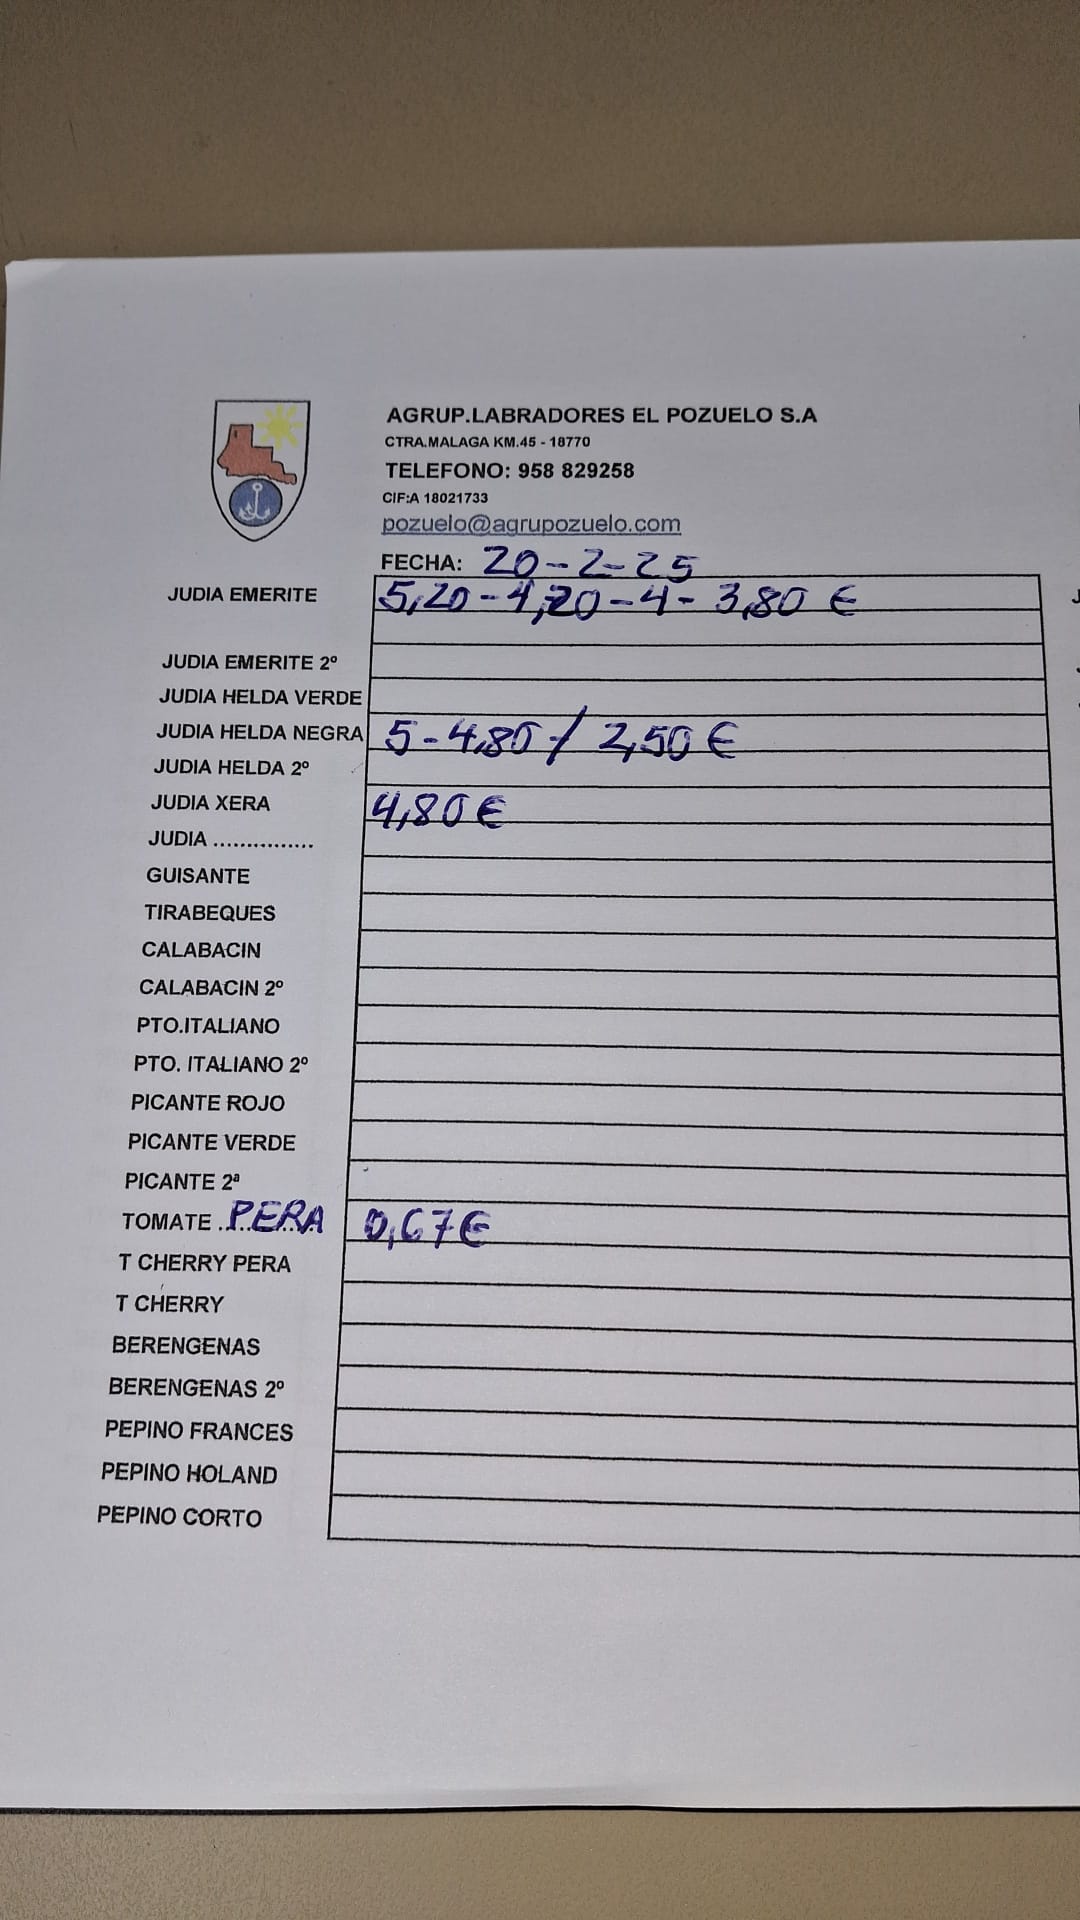 AGRUP.LABRADORES EL POZUELO S.A
CTRA.MALAGA KM.45 - 18770
TELEFONO: 958 829258
CIF:A 18021733
pozuelo@agrupozuelo.com
FECHA: 20-2-25
JUDIA EMERITE 5,20-4,20-4-3,80 €
JUDIA EMERITE 2º
JUDIA HELDA VERDE
JUDIA HELDA NEGRA 5-4,80 / 2,50 €
JUDIA HELDA 2º
JUDIA XERA 4,80 €
JUDIA ...............
GUISANTE
TIRABEQUES
CALABACIN
CALABACIN 2º
PTO.ITALIANO
PTO. ITALIANO 2º
PICANTE ROJO
PICANTE VERDE
PICANTE 2ª
TOMATE ..PERA.. 0,67€
T CHERRY PERA
T CHERRY
BERENGENAS
BERENGENAS 2º
PEPINO FRANCES
PEPINO HOLAND
PEPINO CORTO